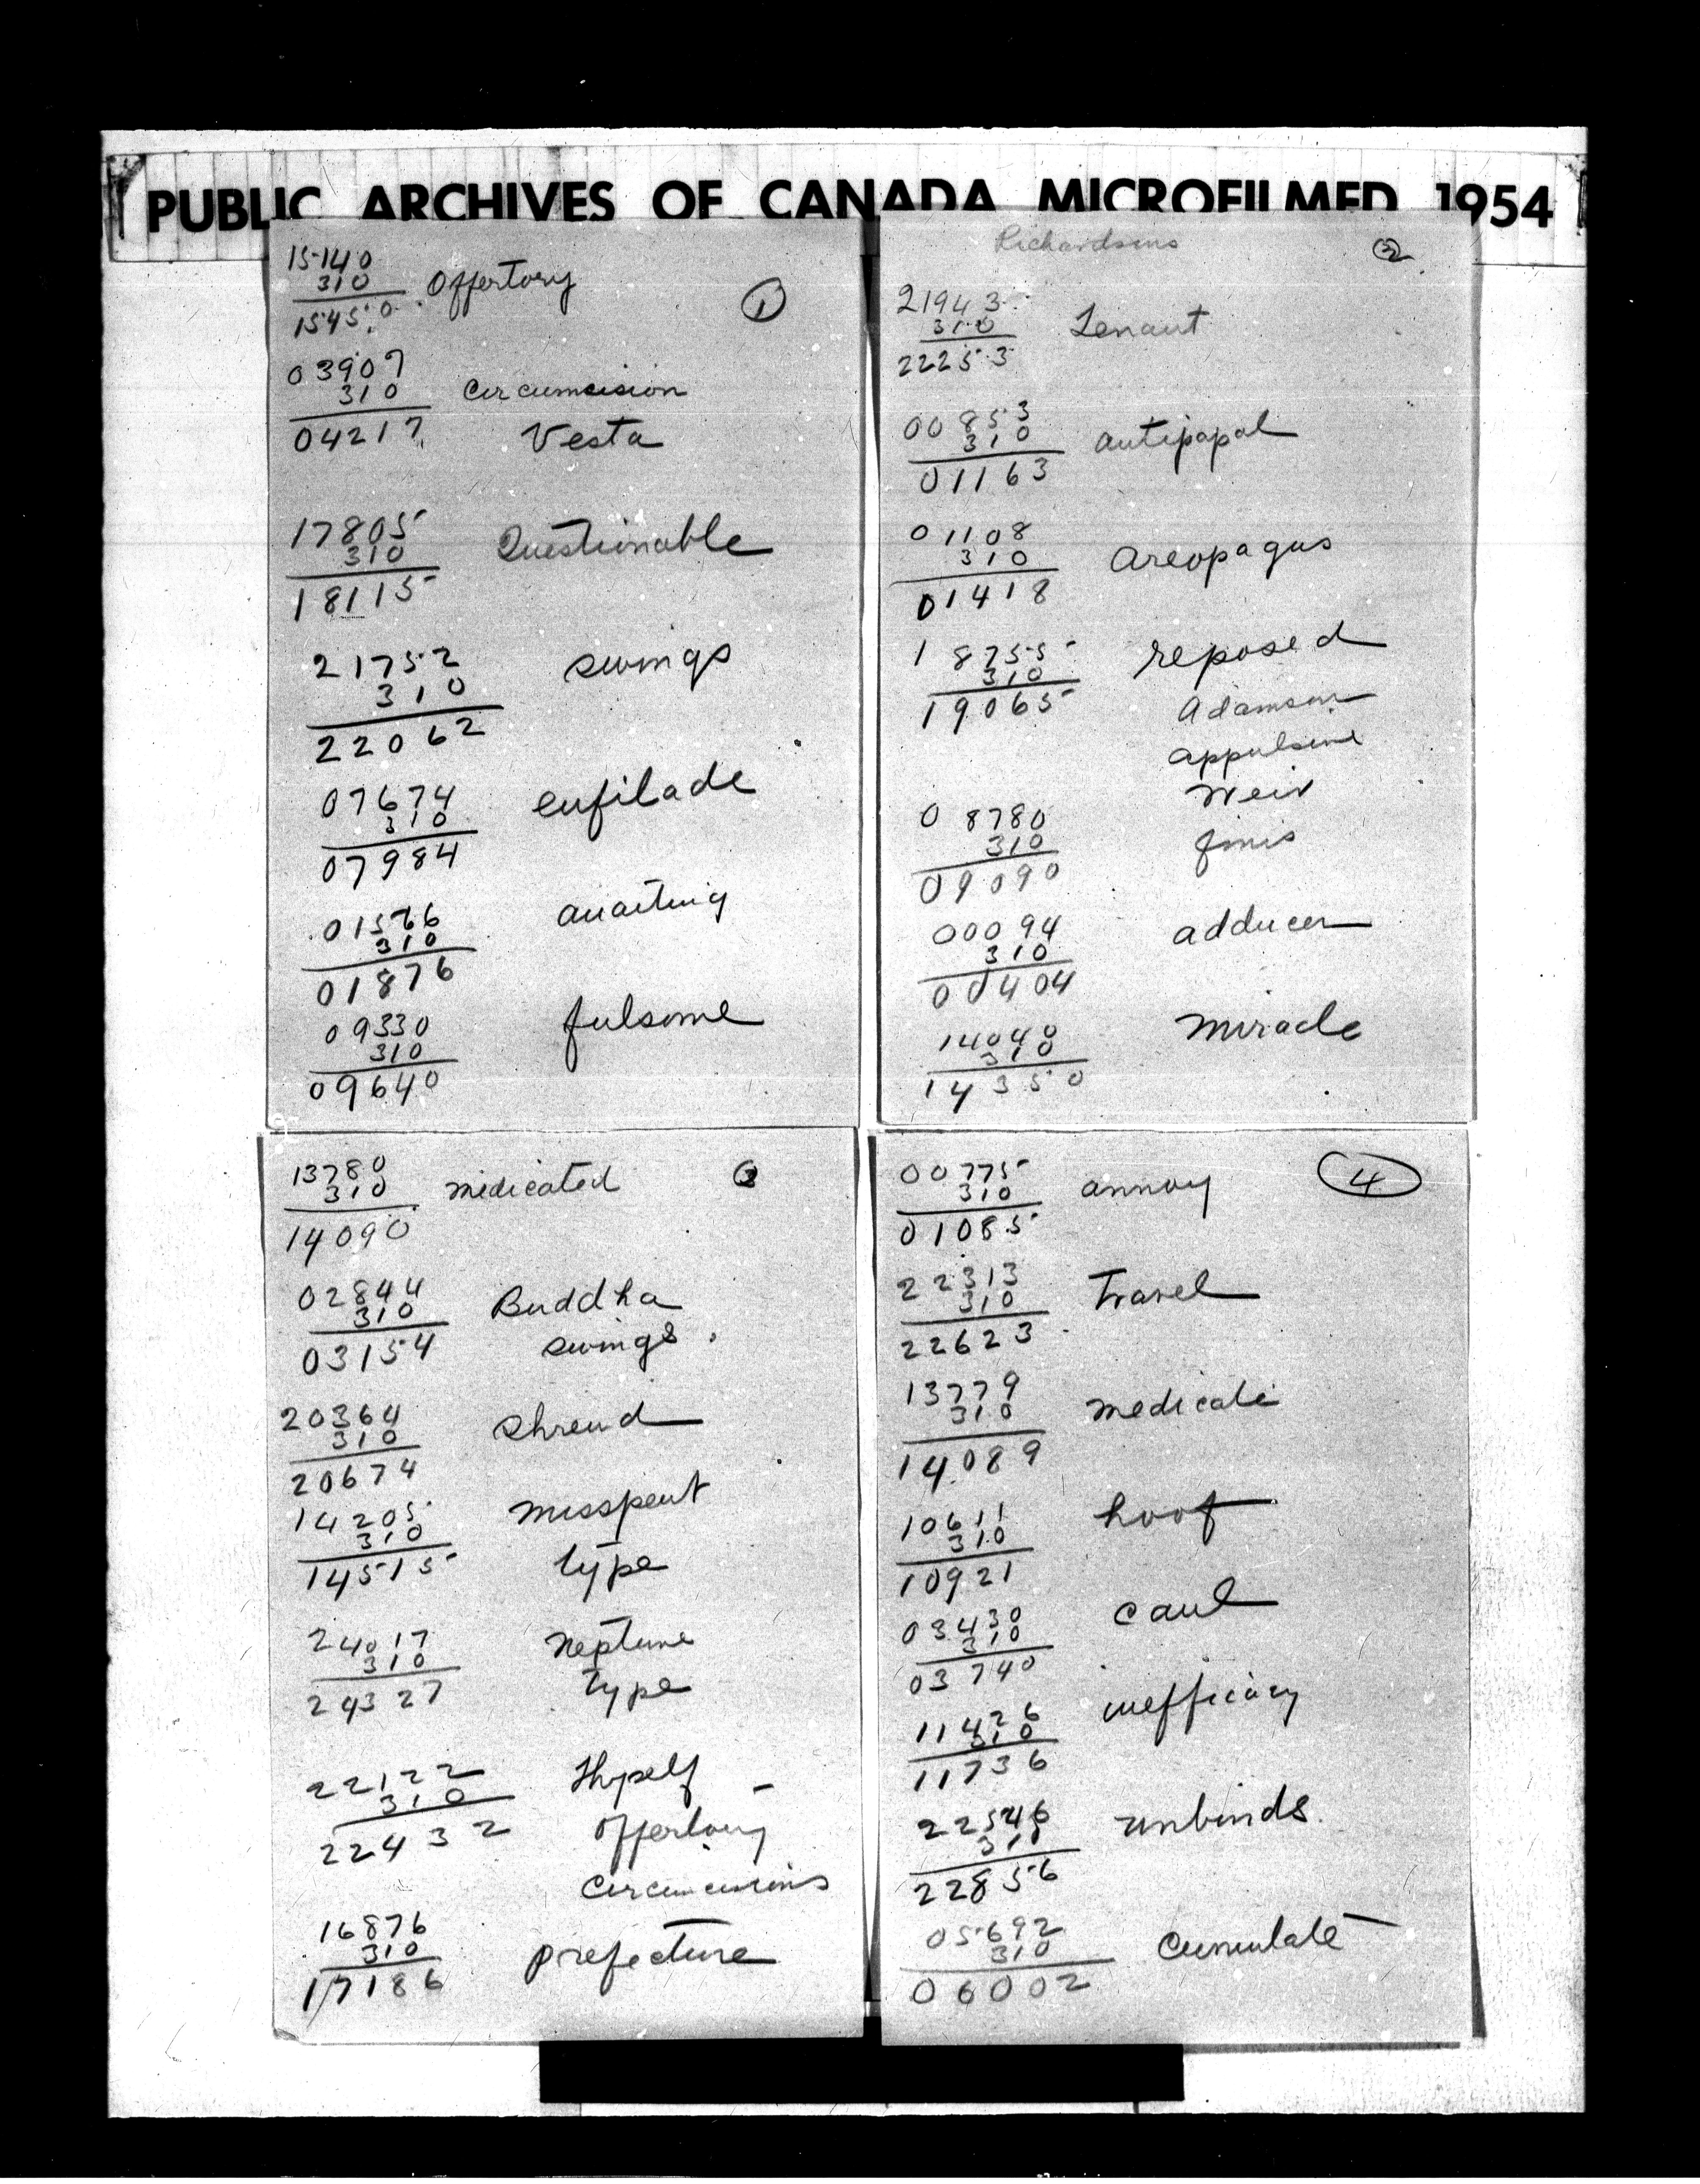 PUBLIC ARCHIVES OF CANADA MICROFILMED 1954
15140
310 Offertory
15450
1
03907
310 Circumcision
04217 Vesta
17805
310 Questionable
18115
21752 swings
310
22062
07674 enfilade
310
07984
01566 awaiting
310
01876
09330 fulsome
310
09640
Richardsons 2
21943
310 Tenant
22253
00853
310 antipapal
01163
01108
310 Areopagus
01418
18755 reposed
310
19065 Adamson
appulsive
Weir
08780
310 finis
09090
00094 adducer
310
00404
14040 Miracle
310
14350
13780 3
310 medicated
14090
02844
310 Buddha
03154 swings.
20364 Shrewd
310
20674
14205 misspent
310
14515 type
24017 Neptune
310
24327 type
22122 Thyself
310
22432 Offertory
Circumcisions
16876
310 prefecture
17186
00775 4
310 annoy
01085
22313
310 Travel
22623
13779
310 medicate
14089
10611 hoof
310
10921
03430 caul
310
03740
11426 inefficacy
310
11736
22546 unbinds.
310
22856
05692
310 cumulate
06002